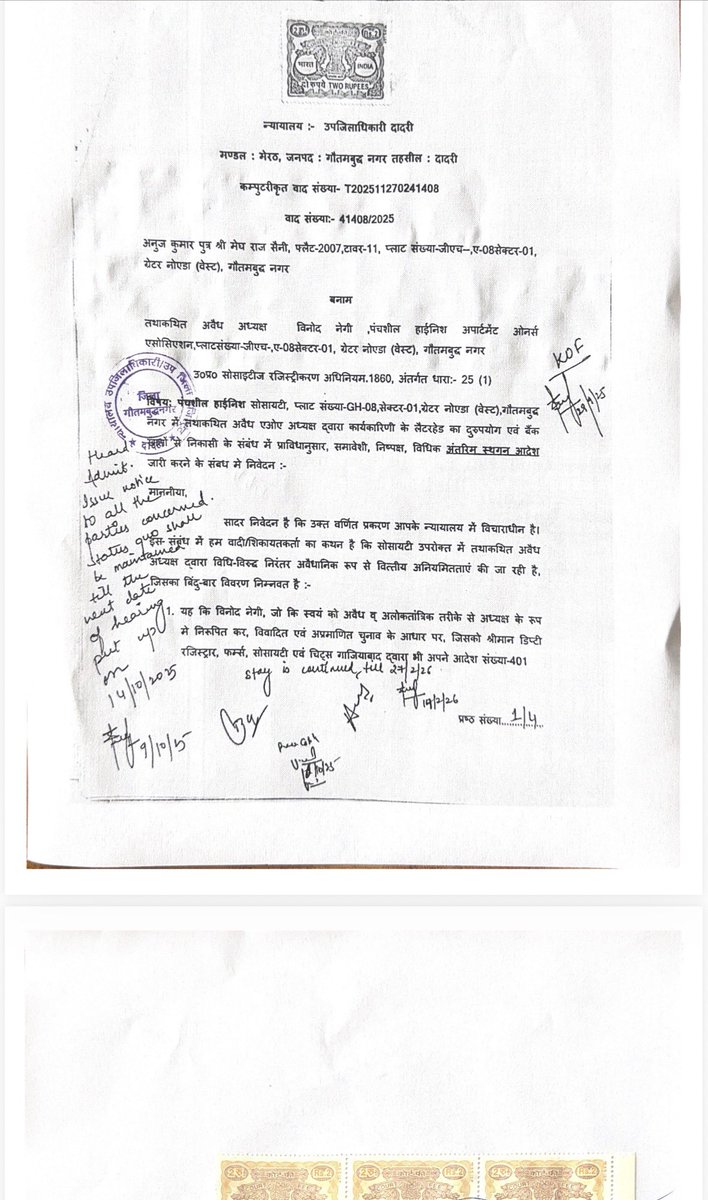 2रु. Rs.2
भारत INDIA
दो रुपये TWO RUPEES
न्यायालय :- उपजिलाधिकारी दादरी
मण्डल : मेरठ, जनपद : गौतमबुद्ध नगर तहसील : दादरी
कम्पुटरीकृत वाद संख्या- T202511270241408
वाद संख्या:- 41408/2025
अनुज कुमार पुत्र श्री मेघ राज सैनी, फ्लैट-2007,टावर-11, प्लाट संख्या-जीएच–,ए-08सेक्टर-01,
ग्रेटर नोएडा (वेस्ट), गौतमबुद्ध नगर
बनाम
तथाकथित अवैध अध्यक्ष विनोद नेगी ,पंचशील हाईनिश अपार्टमेंट ओनर्स
एसोसिएशन,प्लाटसंख्या-जीएच-,ए-08सेक्टर-01, ग्रेटर नोएडा (वेस्ट), गौतमबुद्ध नगर
उ0प्र0 सोसाइटीज रजिस्ट्रीकरण अधिनियम.1860, अंतर्गत धारा:- 25 (1)
KOF
29/9/25
जिला
गौतमबुद्धनगर
विषय: पंचशील हाईनिश सोसायटी, प्लाट संख्या-GH-08,सेक्टर-01,ग्रेटर नोएडा (वेस्ट),गौतमबुद्ध
नगर में तथाकथित अवैध एओए अध्यक्ष द्वारा कार्यकारिणी के लैटरहेड का दुरुपयोग एवं बैंक
से निकासी के संबंध में प्राविधानुसार, समावेशी, निष्पक्ष, विधिक अंतरिम स्थगन आदेश
जारी करने के संबध मे निवेदन :-
माननीया,
सादर निवेदन है कि उक्त वर्णित प्रकरण आपके न्यायालय में विचाराधीन है।
इस संबंध में हम वादी/शिकायतकर्ता का कथन है कि सोसायटी उपरोक्त में तथाकथित अवैध
अध्यक्ष द्वारा विधि-विरुद्ध निरंतर अवैधानिक रूप से वित्तीय अनियमितताएं की जा रही है,
जिसका बिंदु-बार विवरण निम्नवत है :-
1. यह कि विनोद नेगी, जो कि स्वयं को अवैध व् अलोकतांत्रिक तरीके से अध्यक्ष के रूप
मे निरूपित कर, विवादित एवं अप्रमाणित चुनाव के आधार पर, जिसको श्रीमान डिप्टी
रजिस्ट्रार, फर्म्स, सोसायटी एवं चिट्स गाजियाबाद द्वारा भी अपने आदेश संख्या-401
Heard
Admit.
Issue notice
to all the
parties concerned.
Status quo shall
be maintained
till the
next date
of hearing
put up
on
14/10/2025
9/10/25
stay is continued, till 27/2/26
19/2/26
प्रष्ठ संख्या....1/4
2रु. कोर्ट फी Rs.2
COURT FEE
2रु. कोर्ट फी Rs.2
COURT FEE
2रु. कोर्ट फी Rs.2
COURT FEE